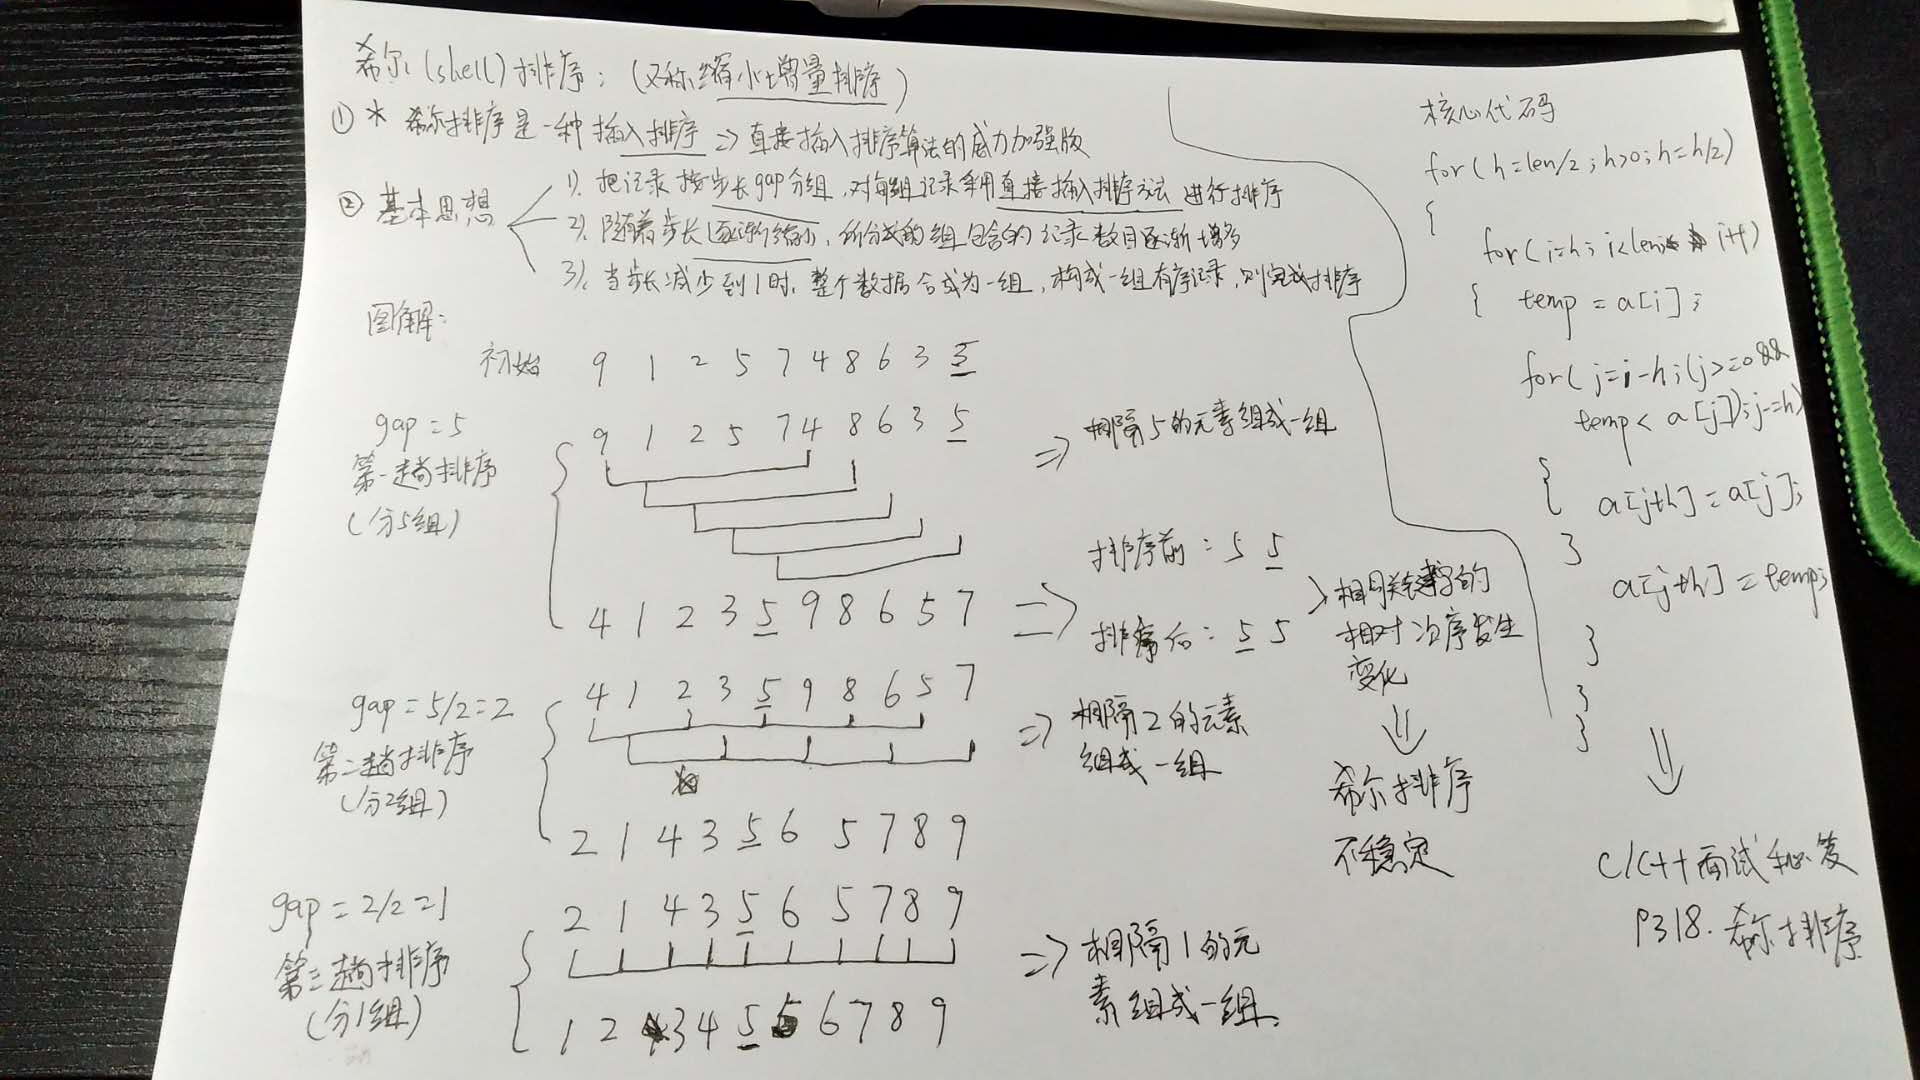 希尔(shell)排序：(又称缩小增量排序)
① * 希尔排序是一种插入排序 => 直接插入排序算法的威力加强版
② 基本思想
1). 把记录按步长gap分组，对每组记录采用直接插入排序方法进行排序
2). 随着步长逐渐缩小，所分成的组包含的记录数目逐渐增多
3). 当步长减少到1时，整个数据合成为一组，构成一组有序记录，则完成排序
图解：
初始 9 1 2 5 7 4 8 6 3 5
gap = 5
第一趟排序
(分5组)
9 1 2 5 7 4 8 6 3 5
=> 相隔5的元素组成一组
4 1 2 3 5 9 8 6 5 7
=> 排序前：5 5
排序后：5 5
相同关键字的
相对次序发生
变化
⇓
希尔排序
不稳定
gap = 5/2 = 2
第二趟排序
(分2组)
4 1 2 3 5 9 8 6 5 7
=> 相隔2的元素
组成一组
2 1 4 3 5 6 5 7 8 9
gap = 2/2 = 1
第三趟排序
(分1组)
2 1 4 3 5 6 5 7 8 9
=> 相隔1的元
素组成一组.
1 2 3 4 5 5 6 7 8 9
核心代码
for(h=len/2;h>0;h=h/2)
{
for(i=h;i<len;i++)
{ temp = a[i];
for(j=i-h;(j>=0&&
temp < a[j]);j-=h)
{ a[j+h] = a[j];
}
a[j+h] = temp;
}
}
}
⇓
C/C++面试秘笈
P318. 希尔排序